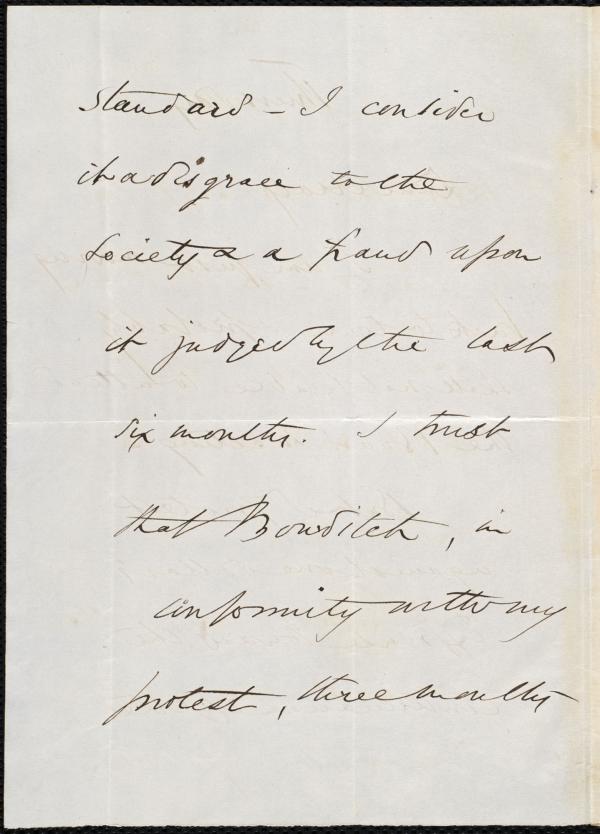 Standard – I consider
it a disgrace to the
Society & a fraud upon
it judged by the last
six months. I trust
that Bowditch, in
conformity with my
protest, three months